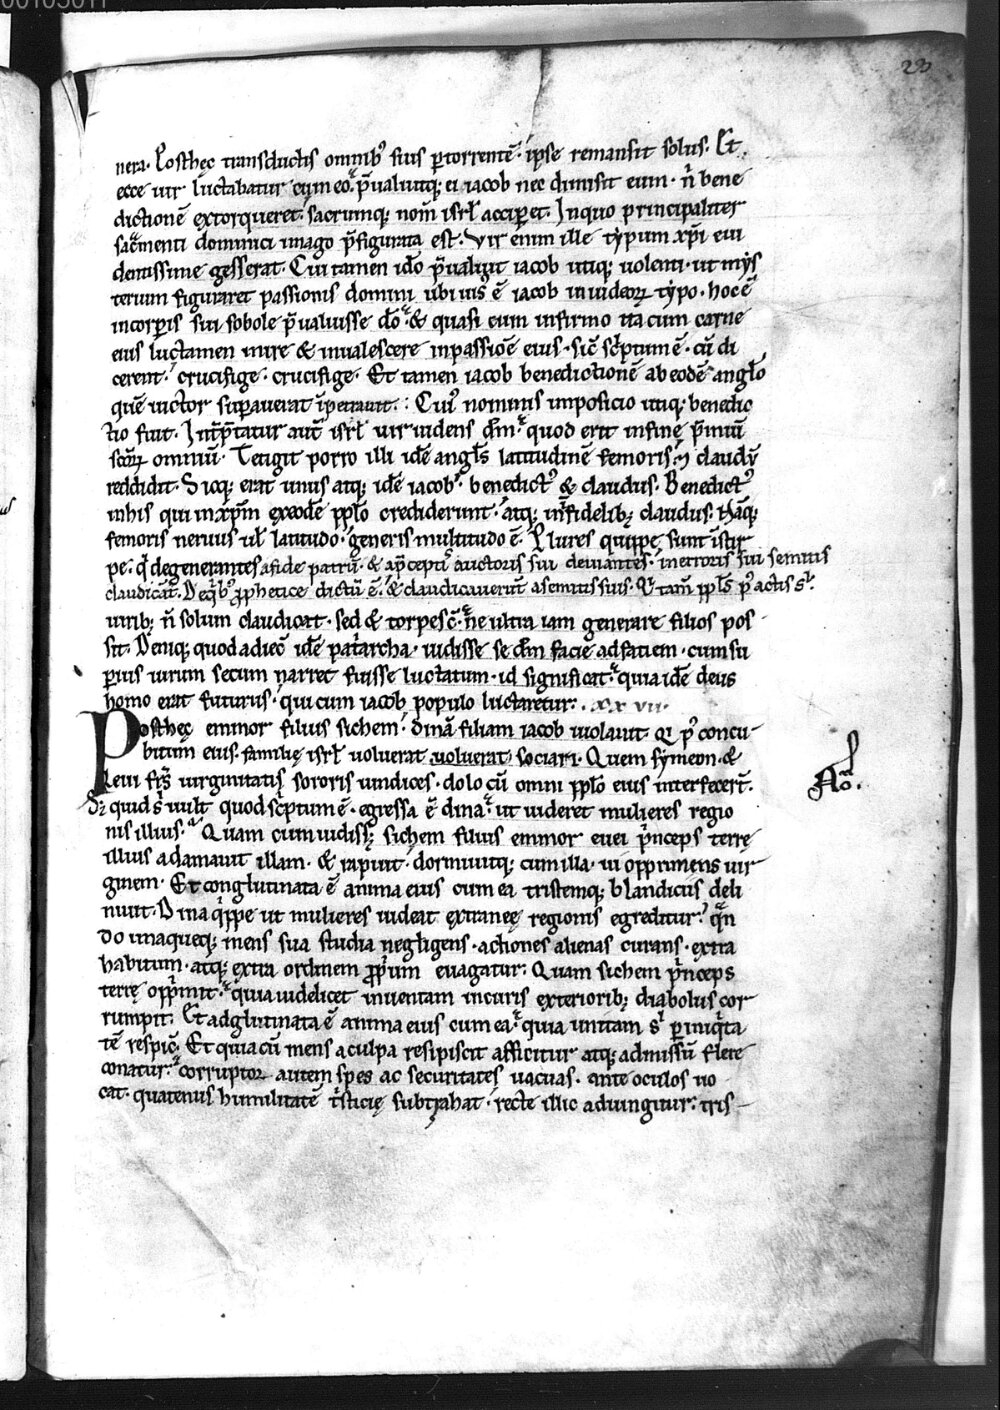 23
nera. Posthęc transductis omnib; suis ꝑtorrentē. ipse remansit solus. Et
ecce uir luctabatur cum eo. p̄ualuitq; ei iacob nec dimisit eum. n̄ bene
dictionē extorqueret. sacrumq; nom̄ isrl̄ acciperet. Inquo principaliter
sacͣmenti dominici imago p̄figurata est. Vir enim ille typum xp̄i eui
dentissime gesserat. Cui tamen ido p̄ualuit iacob utiq; uolenti. ut mys
terium figuraret passionis domini ubi uisꝰ ē iacob in iudeoꝝ typo. hoc ē
incorꝑis sui sobole p̄ualuisse dō. & quasi cum infirmo ita cum carne
eius luctamen inire & inualescere inpassiōe eius. sic̄ sc̄ptum ē. cū di
cerent. crucifige. crucifige. Et tamen iacob benedictionē ab eodē anglō
quē uictor suꝑauerat īpetrauit. Cuiꝰ nominis imposicio utiq; benedic
tio fuit. Int̄p̄tatur aut̄ isrl̄ uir uidens dm̄. quod erit infine p̄miū
sc̄oꝝ omniū. Tetigit porro illi idē angls̄ latitudinē femoris. & claudū
reddidit. Sicq; erat unus atq; idē iacob. benedictꝰ & claudus. Benedictꝰ
inhis qui in xp̄m exeodē ppl̄o crediderunt. atq; in infidelib; claudus. Nāq;
femoris neruus ul̄ latitudo. generis multitudo ē. Plures quippe sunt īstir
pe. q̄ degenerantes afide patrū. & ap̄ceptū auctoris sui deuiantes. inerroris sui semitis
claudicāt. De qͥb; ꝓphetice dictū ē. & claudicauerunt asemitis suis. Qͥ tam̄ ppl̄s ꝑactis sͥ.
uirib; n̄ solum claudicat. sed & torpesc̄. ne ultra iam generare filios pos
sit. Deniq; quod adiec̄ idē patͥarcha. uidisse se dm̄ facie adfaciem. cum su
ꝑius uirum secum narret fuisse luctatum. id significat. quia idē deus
homo erat futurus. qui cum iacob populo luctaretur. xx vii.
Posthęc emmor filius sichem. dinā filiam iacob uiolauit. Qͥ p̄ concu
bitum eius. familię isrl̄ uoluerat uoluerat sociari. Quem symeon. &
leui frs̄ uirginitatis sororis uindices. dolo cū omni ppl̄o eius interfecert̄.
Sꝫ quid sͥ uult quod sc̄ptum ē. egressa ē dina. ut uideret mulieres regio
nis illius. Quam cum uidiss; sichem filius emmor euei p̄nceps terrę
illius adamauit illam. & rapuit. dormiuitq; cum illa. ui opprimens uir
ginem. Et conglutinata ē anima eius cum ea tristemq; blandiciis deli
niuit. Dina qͥppe ut mulieres uideat extraneę regionis egreditur. qn̄
do unaqueq; mens sua studia negligens. actiones alienas curans. extra
habitum. atq; extra ordinem ꝓpͥum euagatur. Quam sichem pͥnceps
terrę oppͥmit. quia uidelicet inuentam incuris exteriorib; diabolus cor
rumpit. Et adglutinata ē anima eius cum ea. quia unitam sͥ ꝑ iniqͥta
tē respic̄. Et quia cū mens a culpa resipiscit afficitur atq; admissū flere
conatur. corruptor autem spes ac securitates uacuas. ante oculos uo
cat. quatenus humilitatē tͥsticię subtrahat. recte illic adiungitur. tris
No.